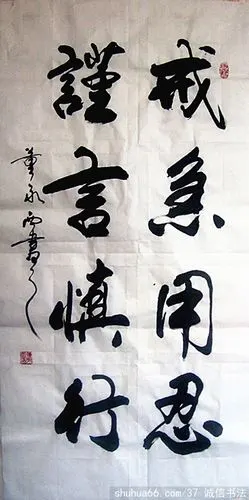 戒急用忍
謹言慎行
董永西書之
shuhua66.com/37 诚信书法